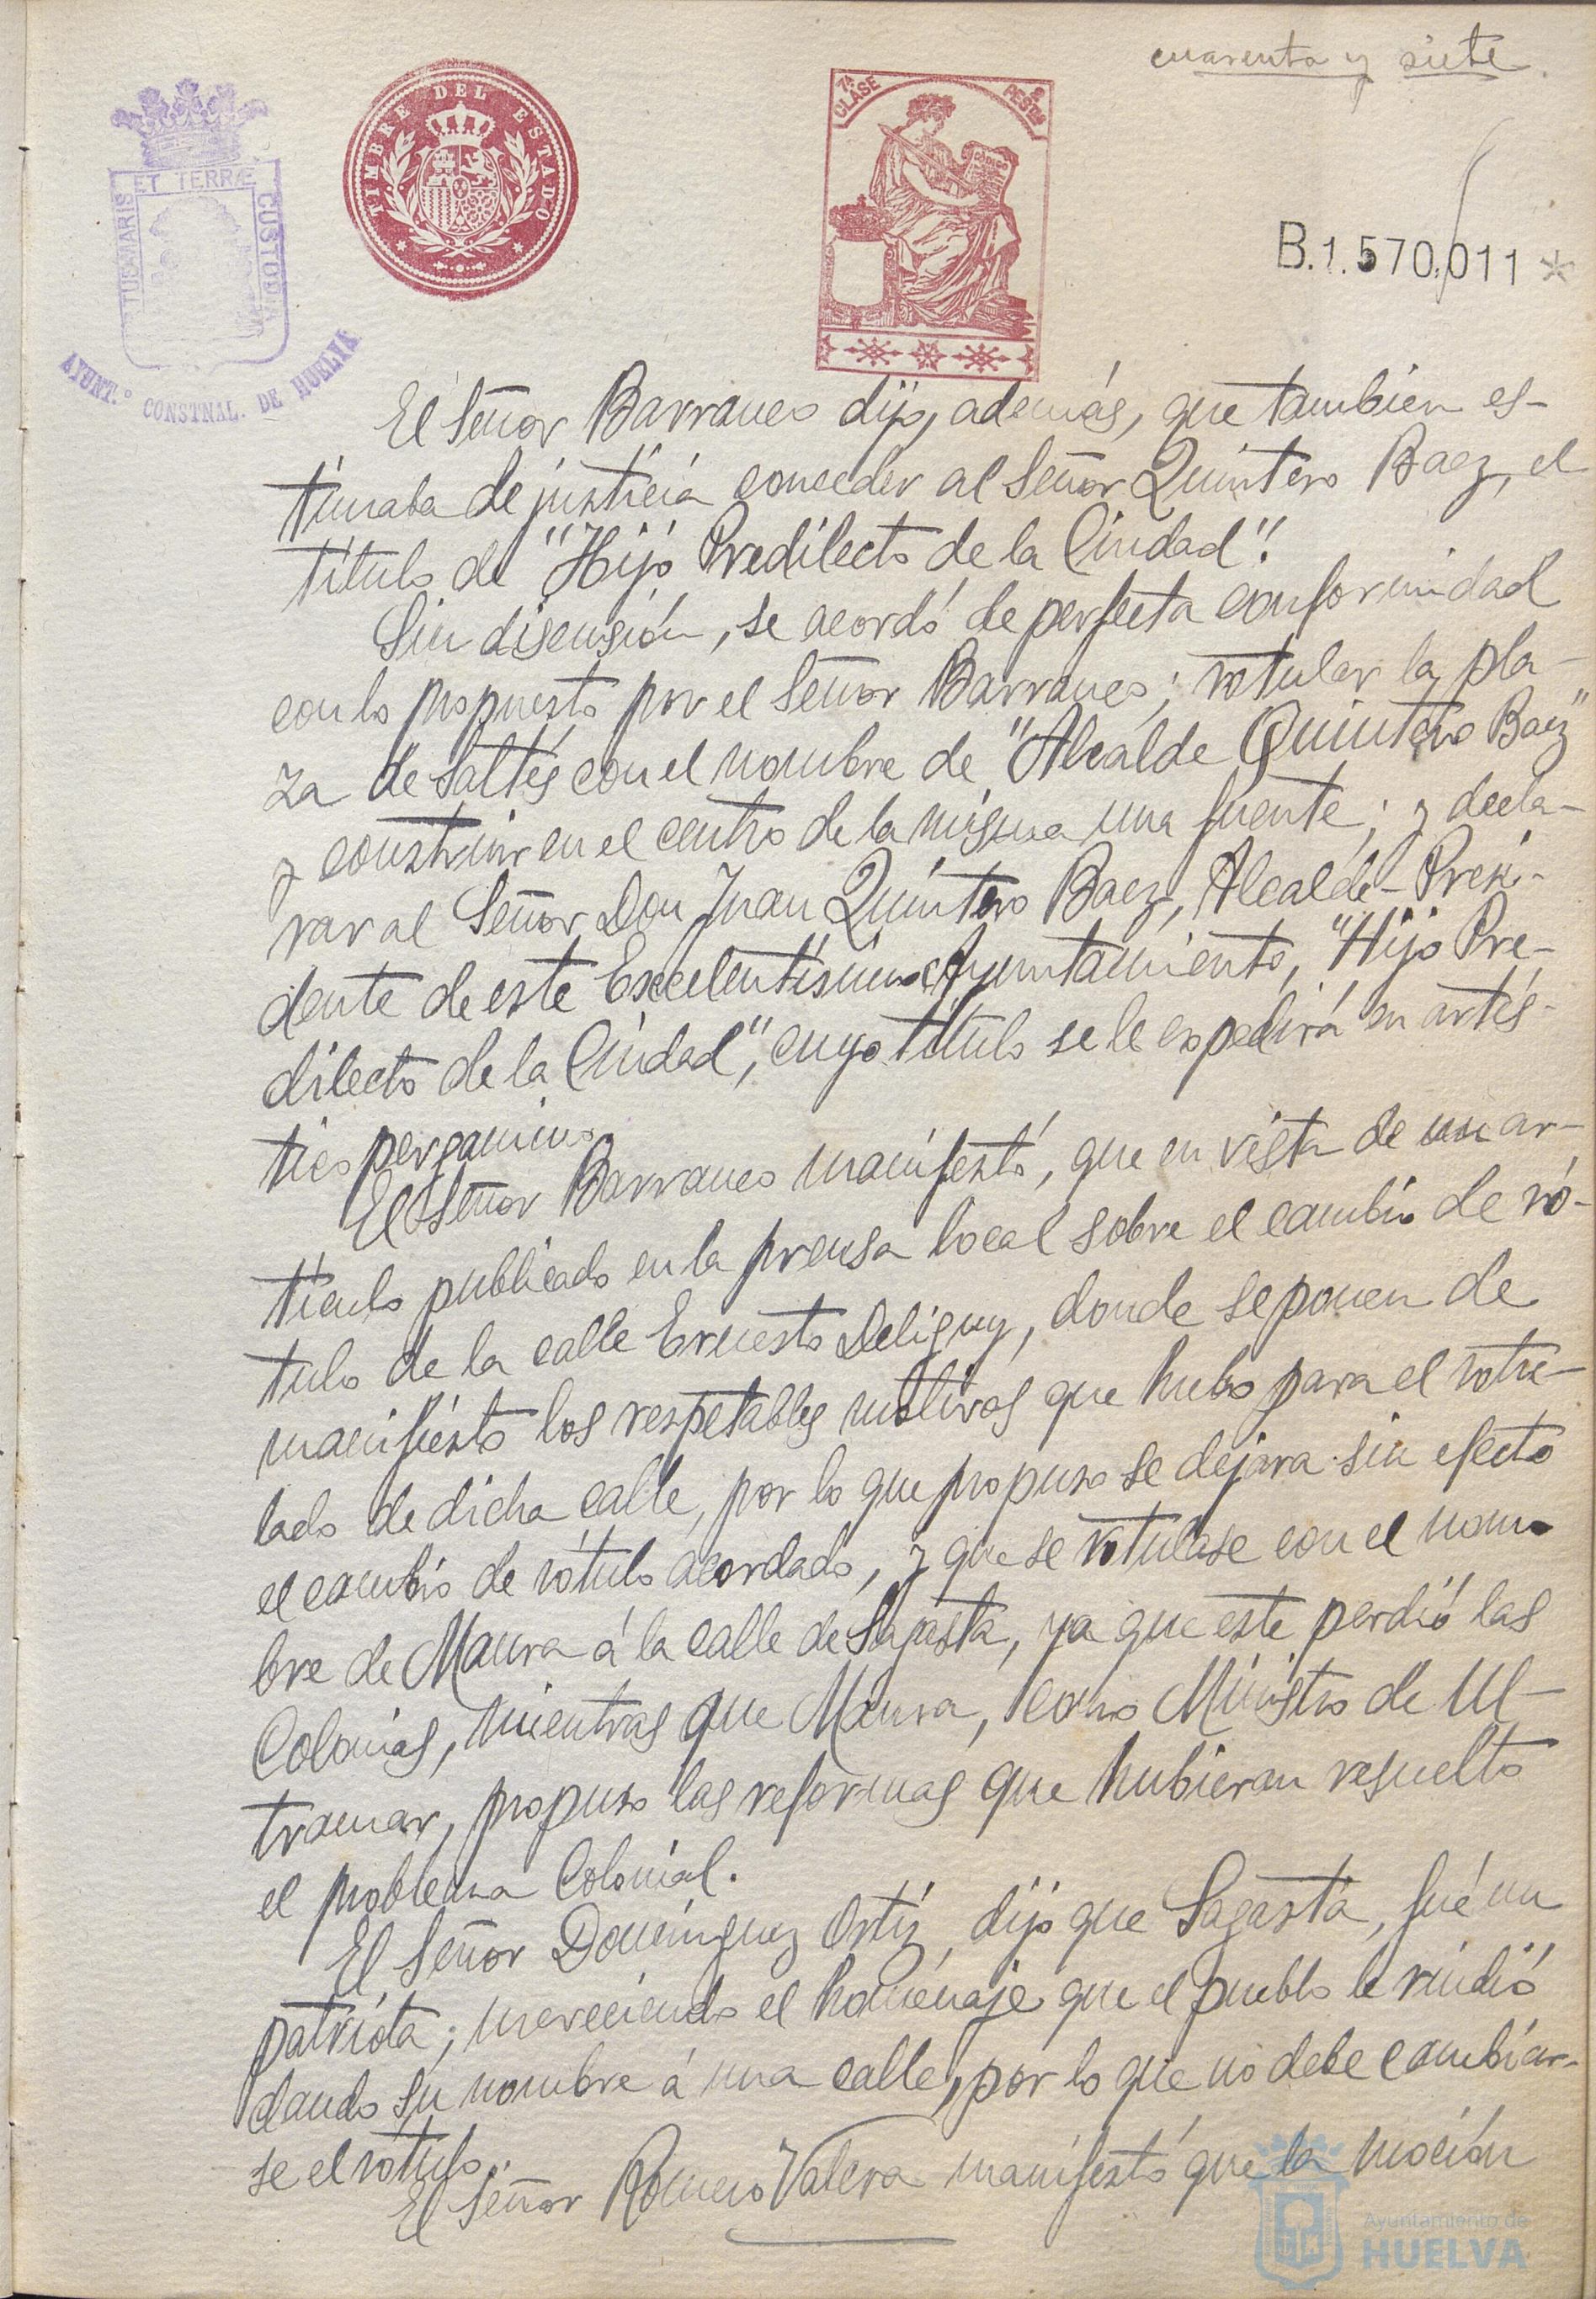 cuarenta y siete
TIMBRE DEL ESTADO
7ª CLASE
PESETAS
CODIGO
ET TERRÆ
CUSTODIA
AYUNT.º CONSTNAL. DE HUELVA
B.1.570,011 *
El Señor Barranco dijo, además, que tambien es-
timaba de justicia conceder al Señor Quintero Baez, el
título de "Hijo Predilecto de la Ciudad".
Sin discusión, se acordó de perfecta conformidad
con lo propuesto por el Señor Barranco; rotular la pla-
za de Saltés con el nombre de "Alcalde Quintero Baez"
y construir en el centro de la misma una fuente; y decla-
rar al Señor Don Juan Quintero Baez, Alcalde-Presi-
dente de este Excelentísimo Ayuntamiento, "Hijo Pre-
dilecto de la Ciudad", cuyo título se le expedirá en artís-
tico pergamino.
El Señor Barranco manifestó, que en vista de un ar-
tículo publicado en la prensa local sobre el cambio de ró-
tulo de la calle Ernesto Deligny, donde se ponen de
manifiesto los respetables motivos que hubo para el rotu-
lado de dicha calle, por lo que propuso se dejara sin efecto
el cambio de rótulo acordado, y que se rotulase con el nom-
bre de Maura á la calle de Sagasta, ya que este perdió las
Colonias, mientras que Maura, como Ministro de Ul-
tramar, propuso las reformas que hubieran resuelto
el problema Colonial.
El Señor Domínguez Ortiz, dijo que Sagasta, fué un
patriota; mereciendo el homenaje que el pueblo le rindió
dando su nombre á una calle, por lo que no debe cambiar-
se el rótulo.
El Señor Romero Valera manifestó que la moción
Ayuntamiento de
HUELVA